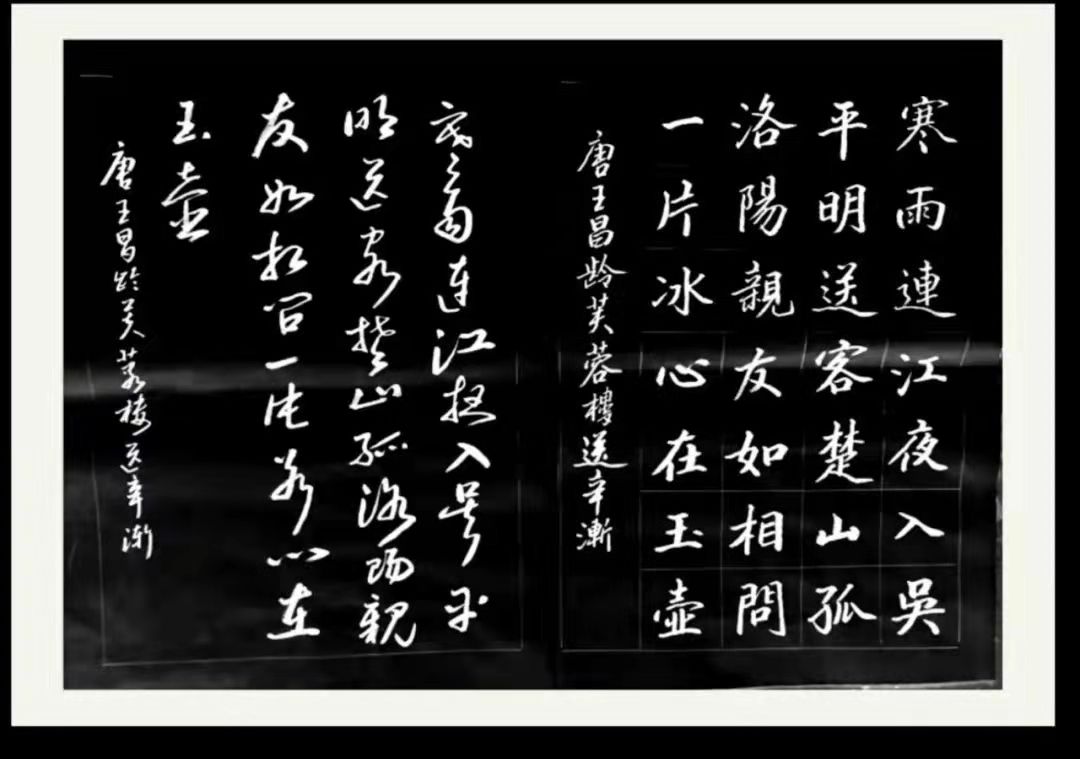 寒雨連江夜入吳
平明送客楚山孤
洛陽親友如相問
一片冰心在玉壺
唐王昌龄芙蓉樓送辛漸
寒雨连江夜入吴平
明送客楚山孤洛阳親
友如相问一片冰心在
玉壶
唐王昌龄芙蓉楼送辛渐